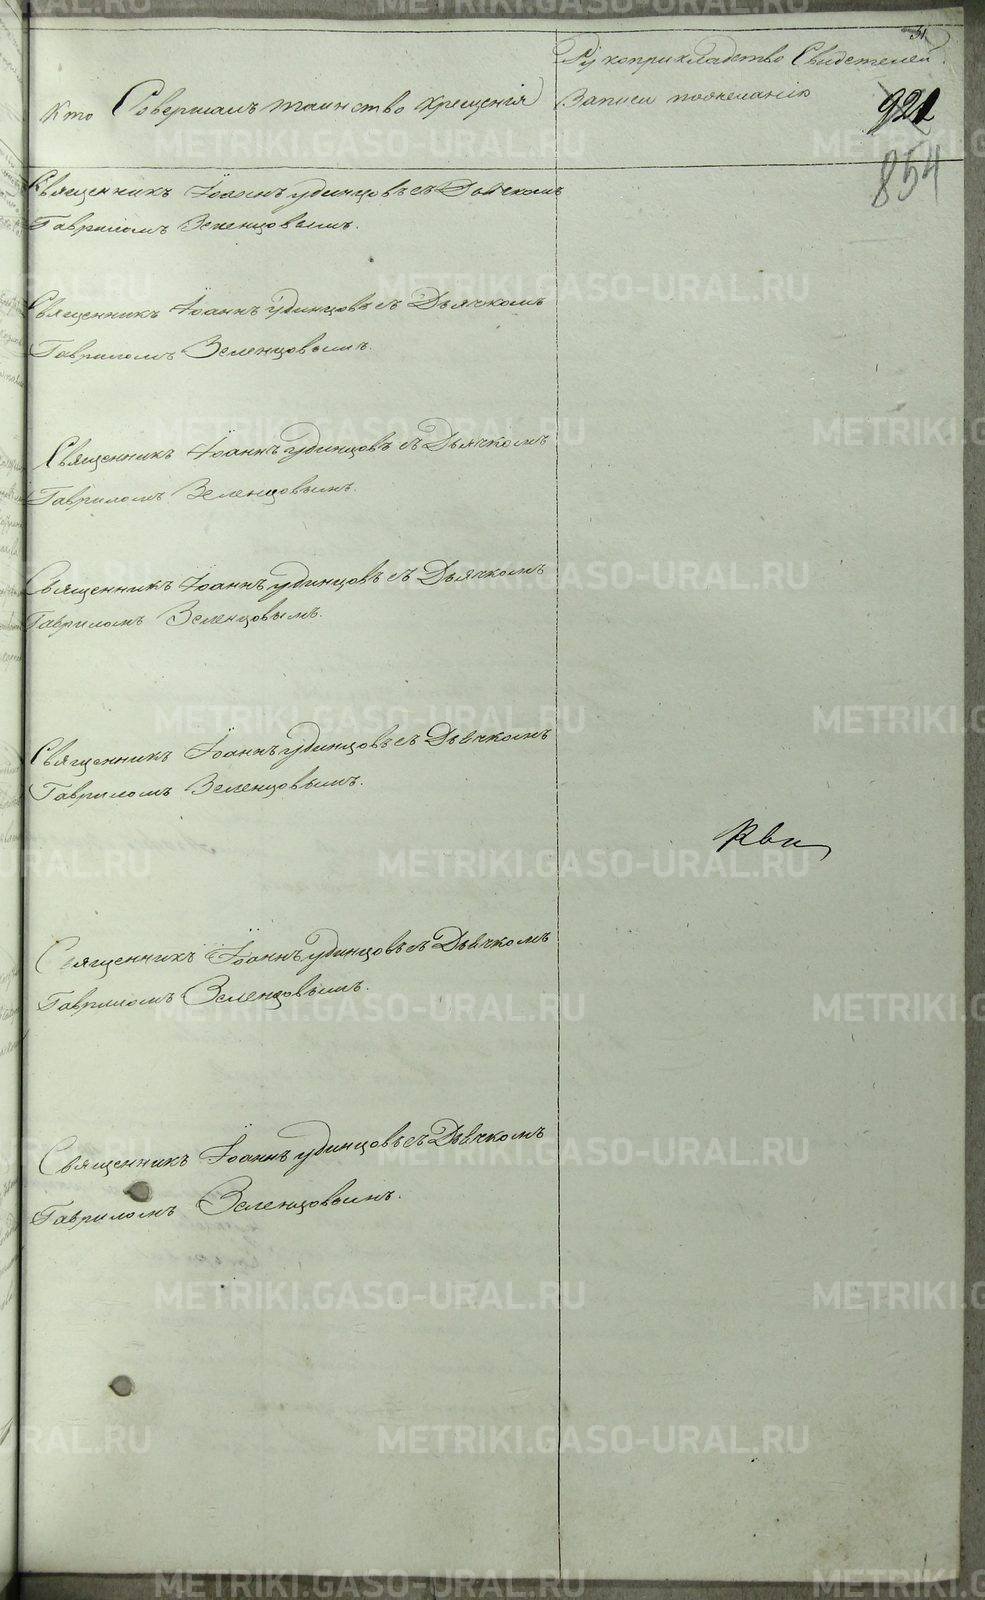 31
Рукоприкладство Свидетелей
Кто Совершалъ таинство крещенія
Записи пожеланію
922
854
Священникъ Іоаннъ Удинцовъ съ Дьячкомъ
Гавриломъ Зеленцовымъ.
Священникъ Іоаннъ Удинцовъ съ Дьячкомъ
Гавриломъ Зеленцовымъ.
Священникъ Іоаннъ Удинцовъ съ Дьячкомъ
Гавриломъ Зеленцовымъ.
Священникъ Іоаннъ Удинцовъ съ Дьячкомъ
Гавриломъ Зеленцовымъ.
Священникъ Іоаннъ Удинцовъ съ Дьячкомъ
Гавриломъ Зеленцовымъ.
Священникъ Іоаннъ Удинцовъ съ Дьячкомъ
Гавриломъ Зеленцовымъ.
Священникъ Іоаннъ Удинцовъ съ Дьячкомъ
Гавриломъ Зеленцовымъ.
METRIKI.GASO-URAL.RU